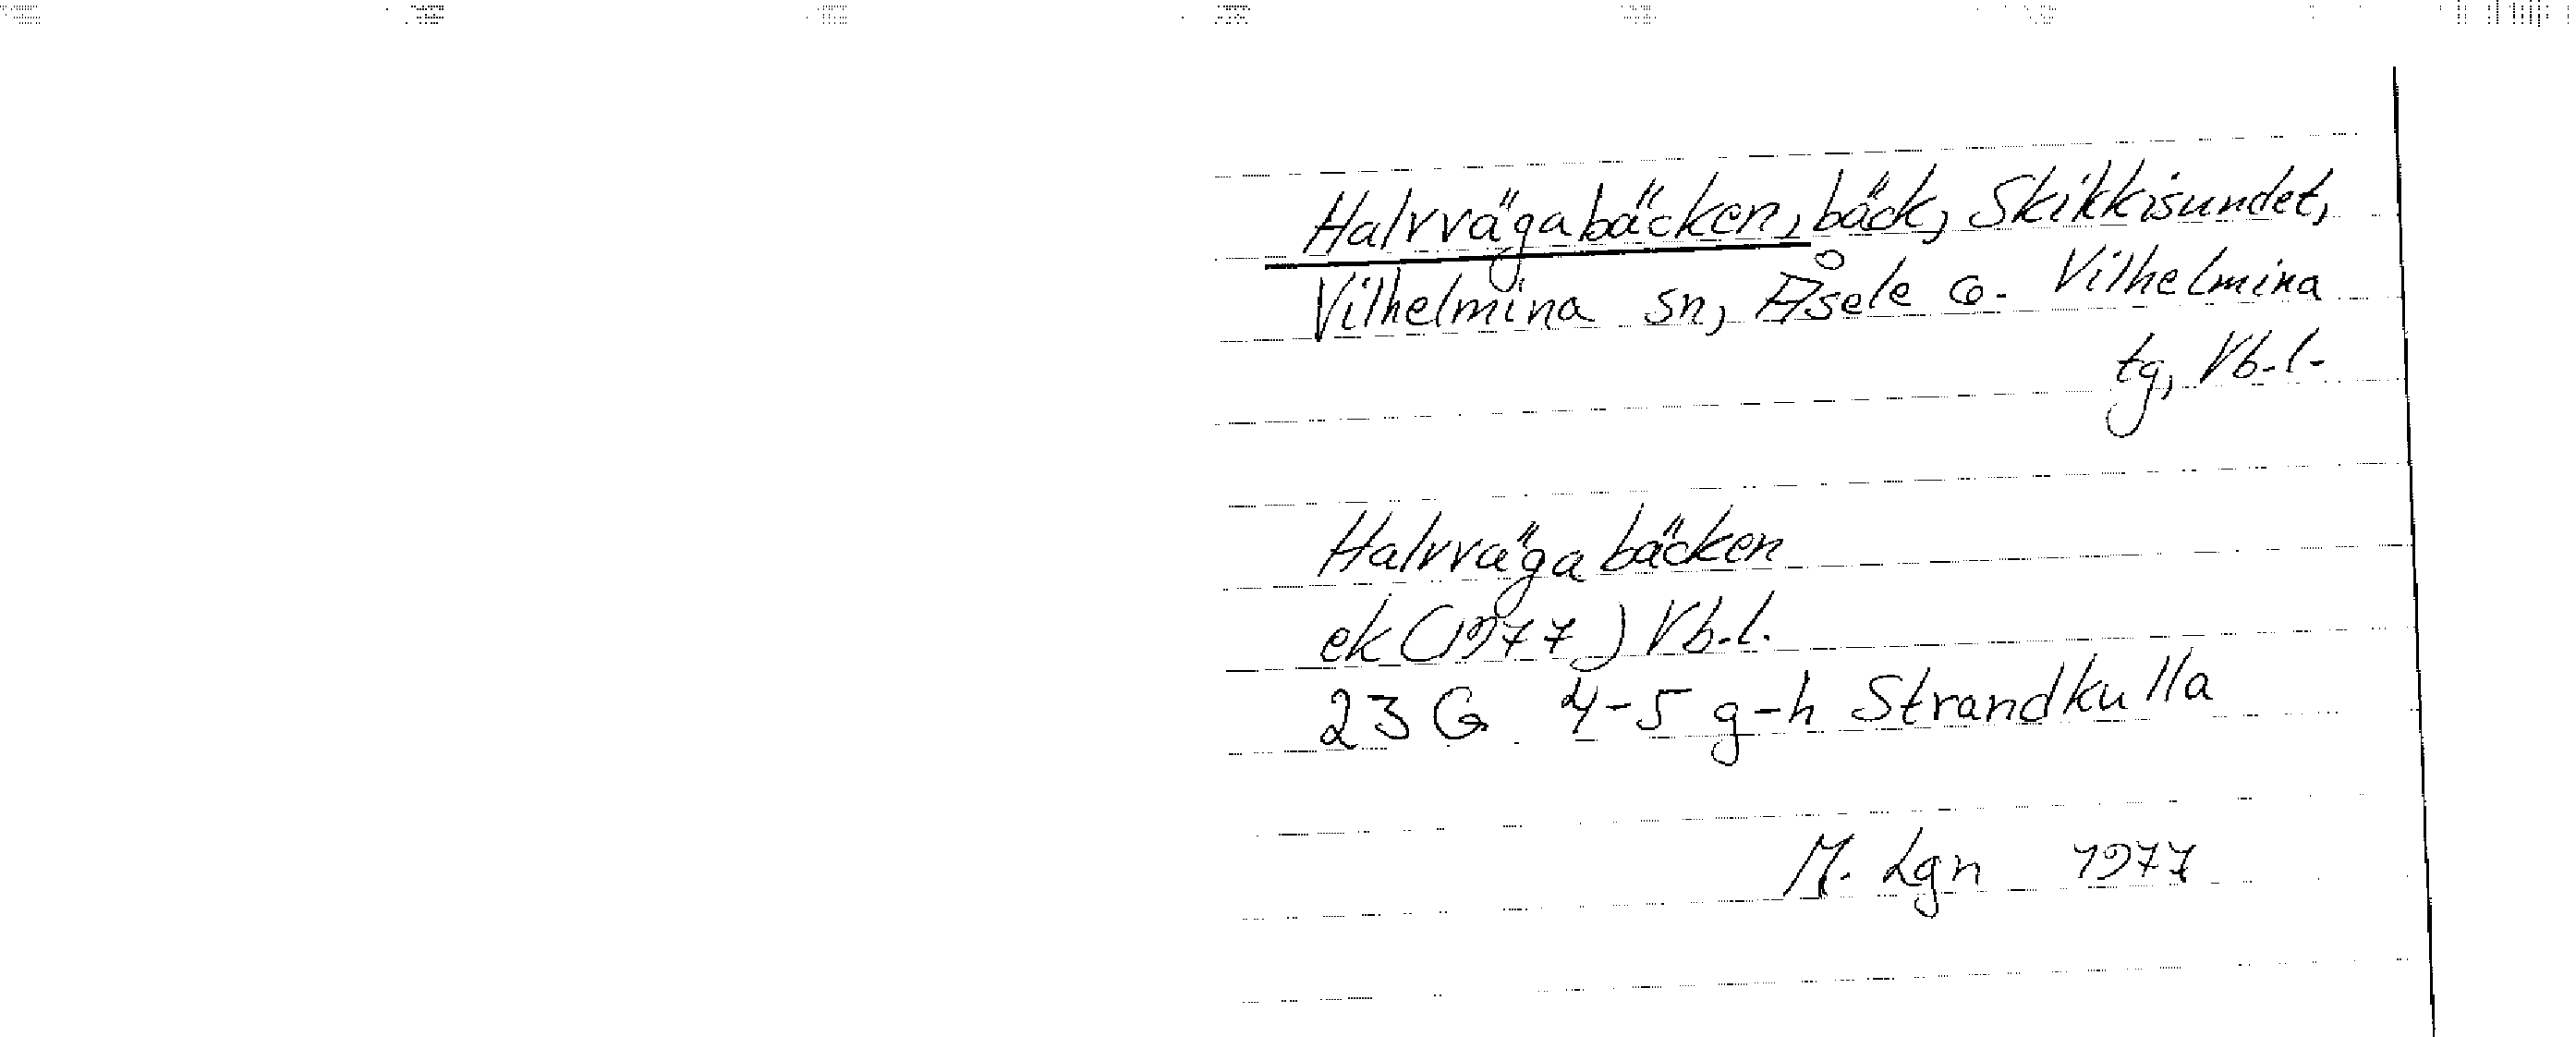 Halvvägabäcken, bäck, Skikkisundet,
Vilhelmina sn, Åsele co. Vilhelmina
tg, Vb.l.
Halvvägabäcken
ek (1977) Vb.l.
23 G 4-5 g-h Strandkulla
M. Lgn 1977